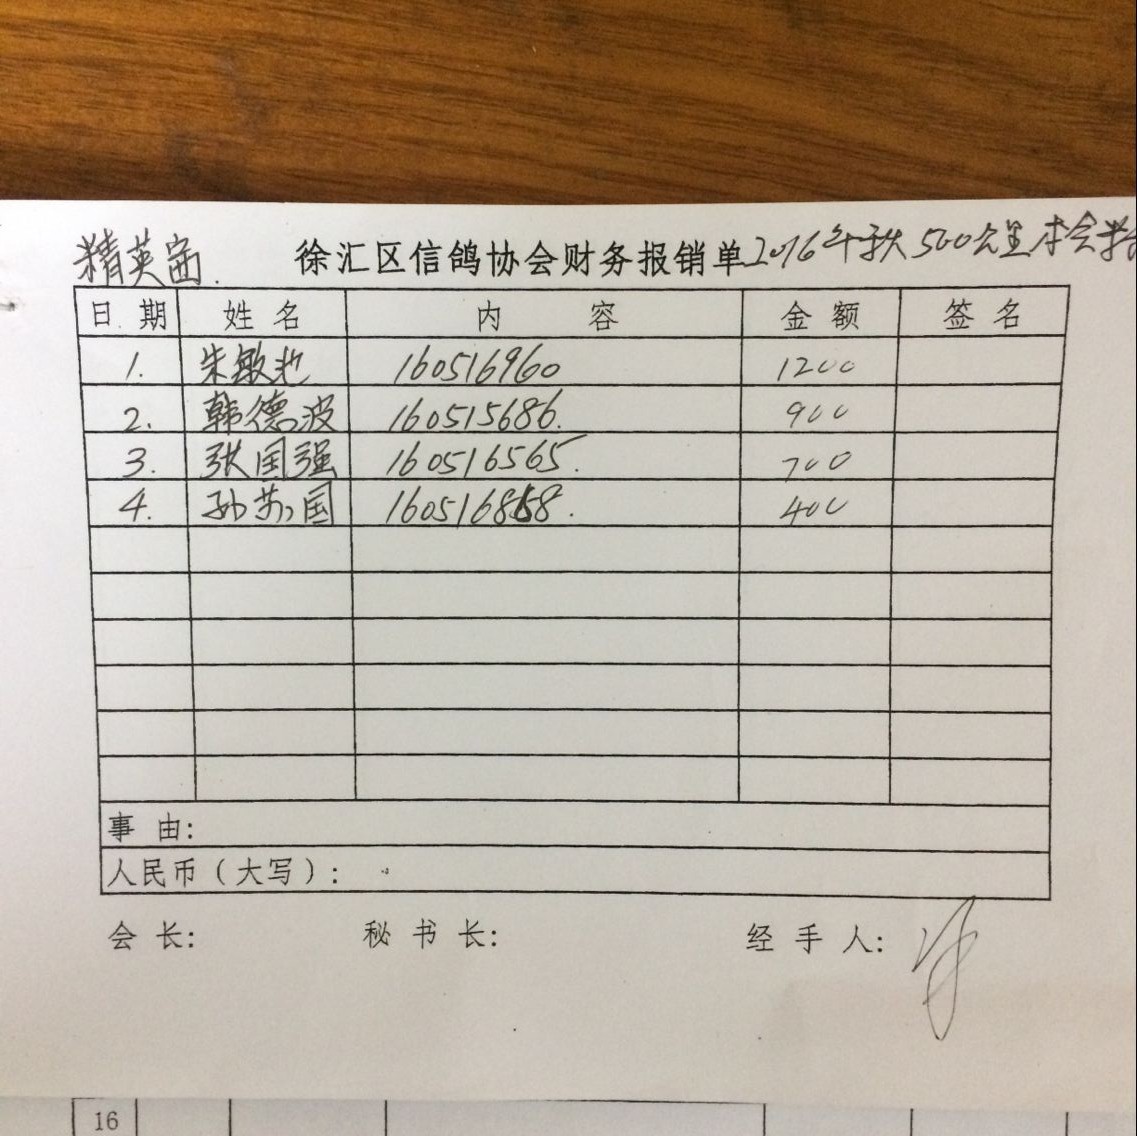 精英 徐汇区信鸽协会财务报销单 2016年秋500公里本会
日期 姓名 内容 金额 签名
1. 朱敏 160516960 1200
2. 韩德波 160515686. 900
3. 张国强 160516565. 700
4. 孙苏国 400
事由:
人民币(大写):
会长: 秘书长: 经手人:
16